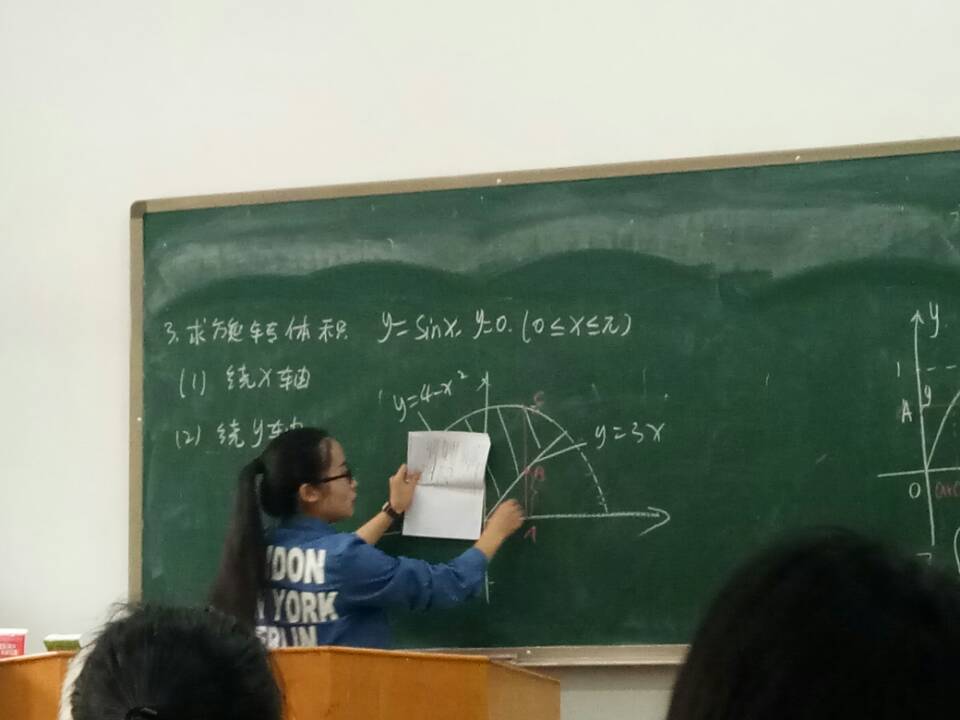 3. 求旋转体积 y=sinx, y=0. (0≤x≤π)
(1) 绕x轴
(2) 绕y轴
y=4-x²
y=3x
C
B
A
y
1
y
A
0
NDON
YORK
BERLIN